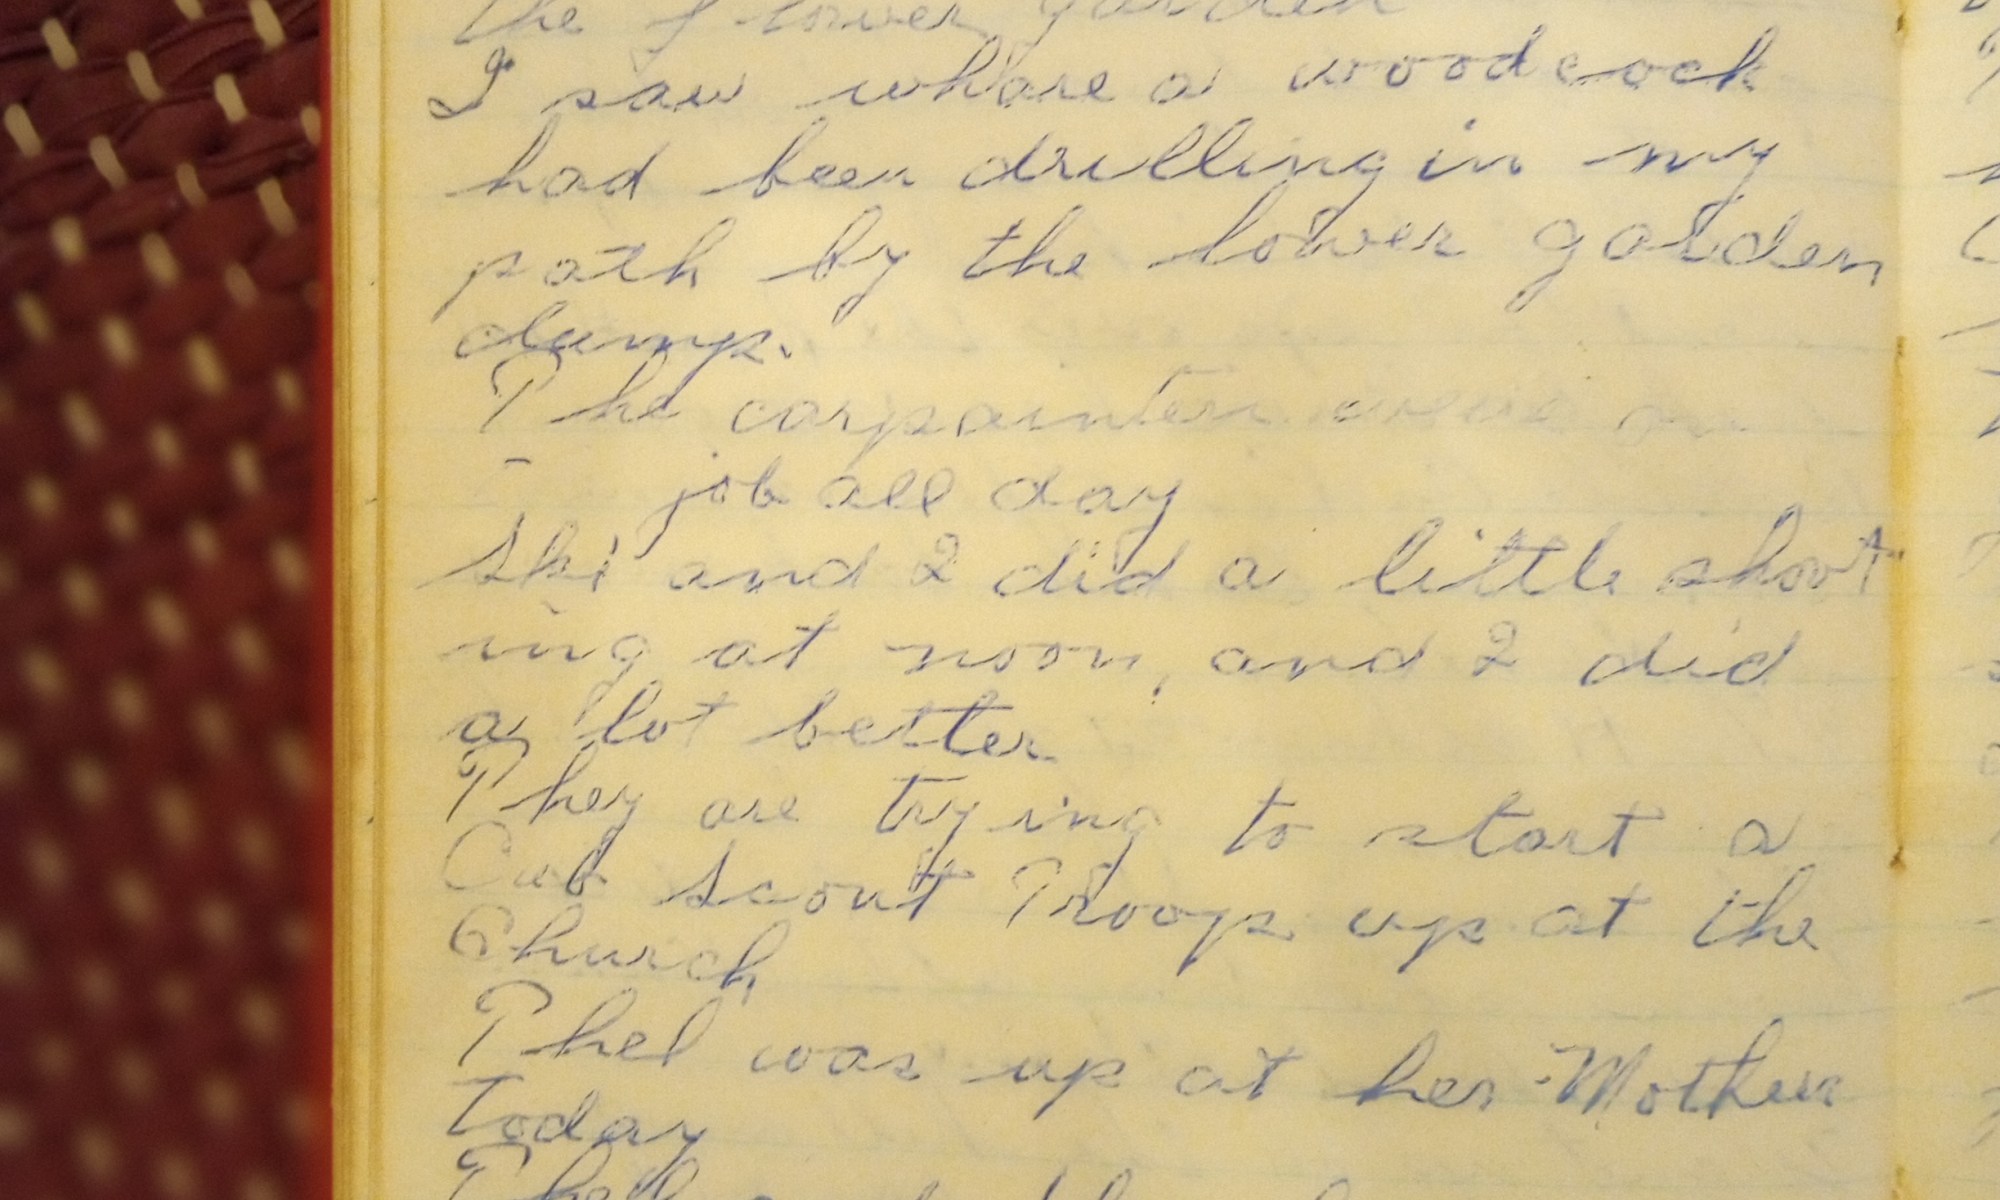 the flower garden
I saw whare a woodcock
had been drilling in my
path by the lower garden
dump.
The carpainters were on
job all day
Ski and I did a little shoot
ing at noon, and I did
a lot better
They are trying to start a
Cub Scout Troop up at the
Church
Thel was up at her Mothers
Today